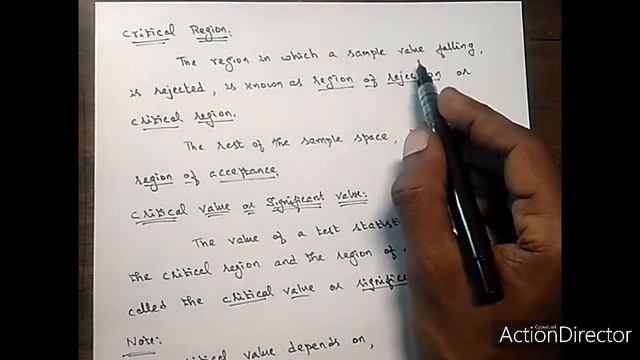 Critical Region:
The region in which a sample value falling,
is rejected, is known as region of rejection or
critical region.
The rest of the sample space,
region of acceptance.
Critical value or Significant value:
The value of a test statist
the critical region and the region of
called the critical value or significa
Note:
critical value depends on,
CyberLink
ActionDirector